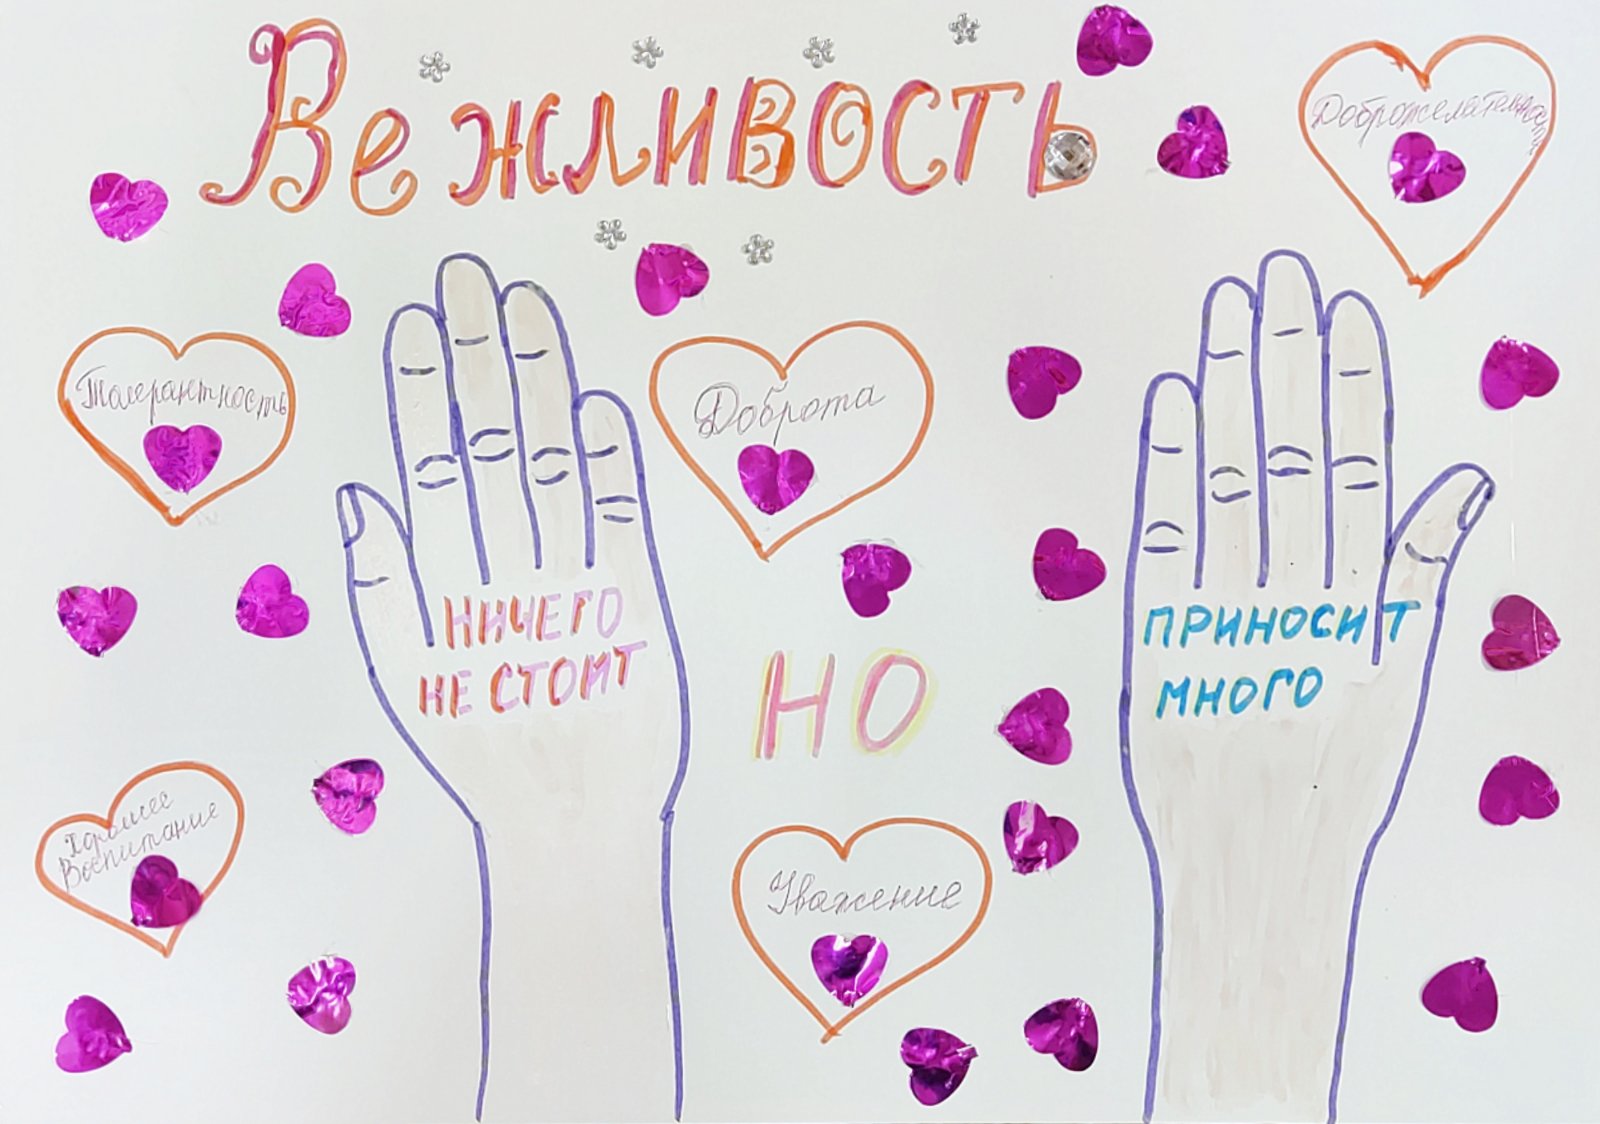 Вежливость
Доброжелательность
Толерантность
Доброта
НИЧЕГО
НЕ СТОИТ
НО
ПРИНОСИТ
МНОГО
Хорошее
Воспитание
Уважение